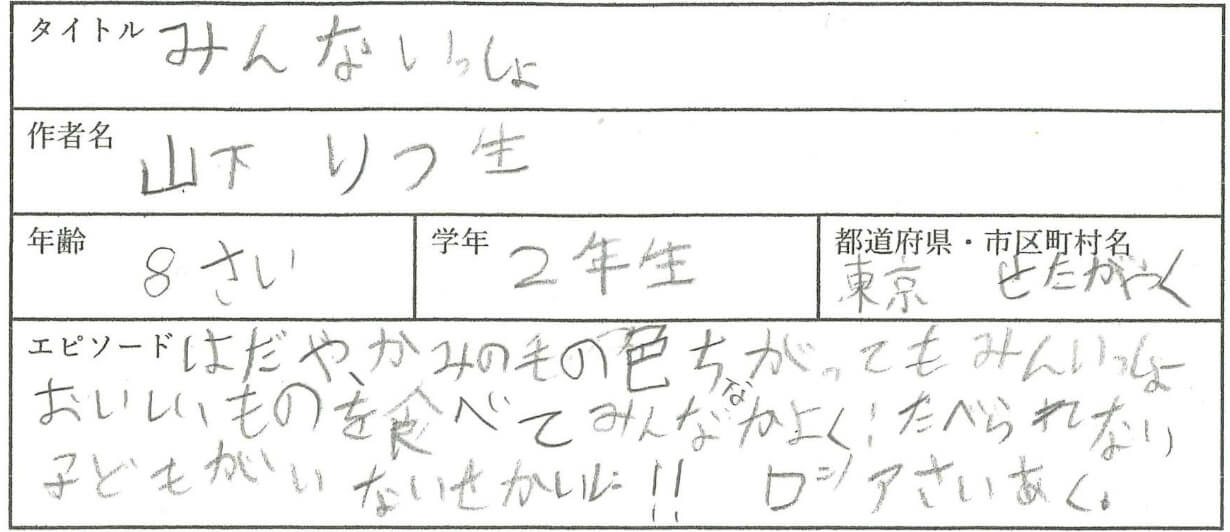 タイトル みんないっしょ
作者名 山下 りつ生
年齢 8さい 学年 2年生 都道府県・市区町村名 東京 せたがやく
エピソード はだやかみの毛の色ちがってもみんいっしょ
おいしいものを食べてみんななかよく!たべられない
子どもがいいないせかいに!! ロシアさいあく。